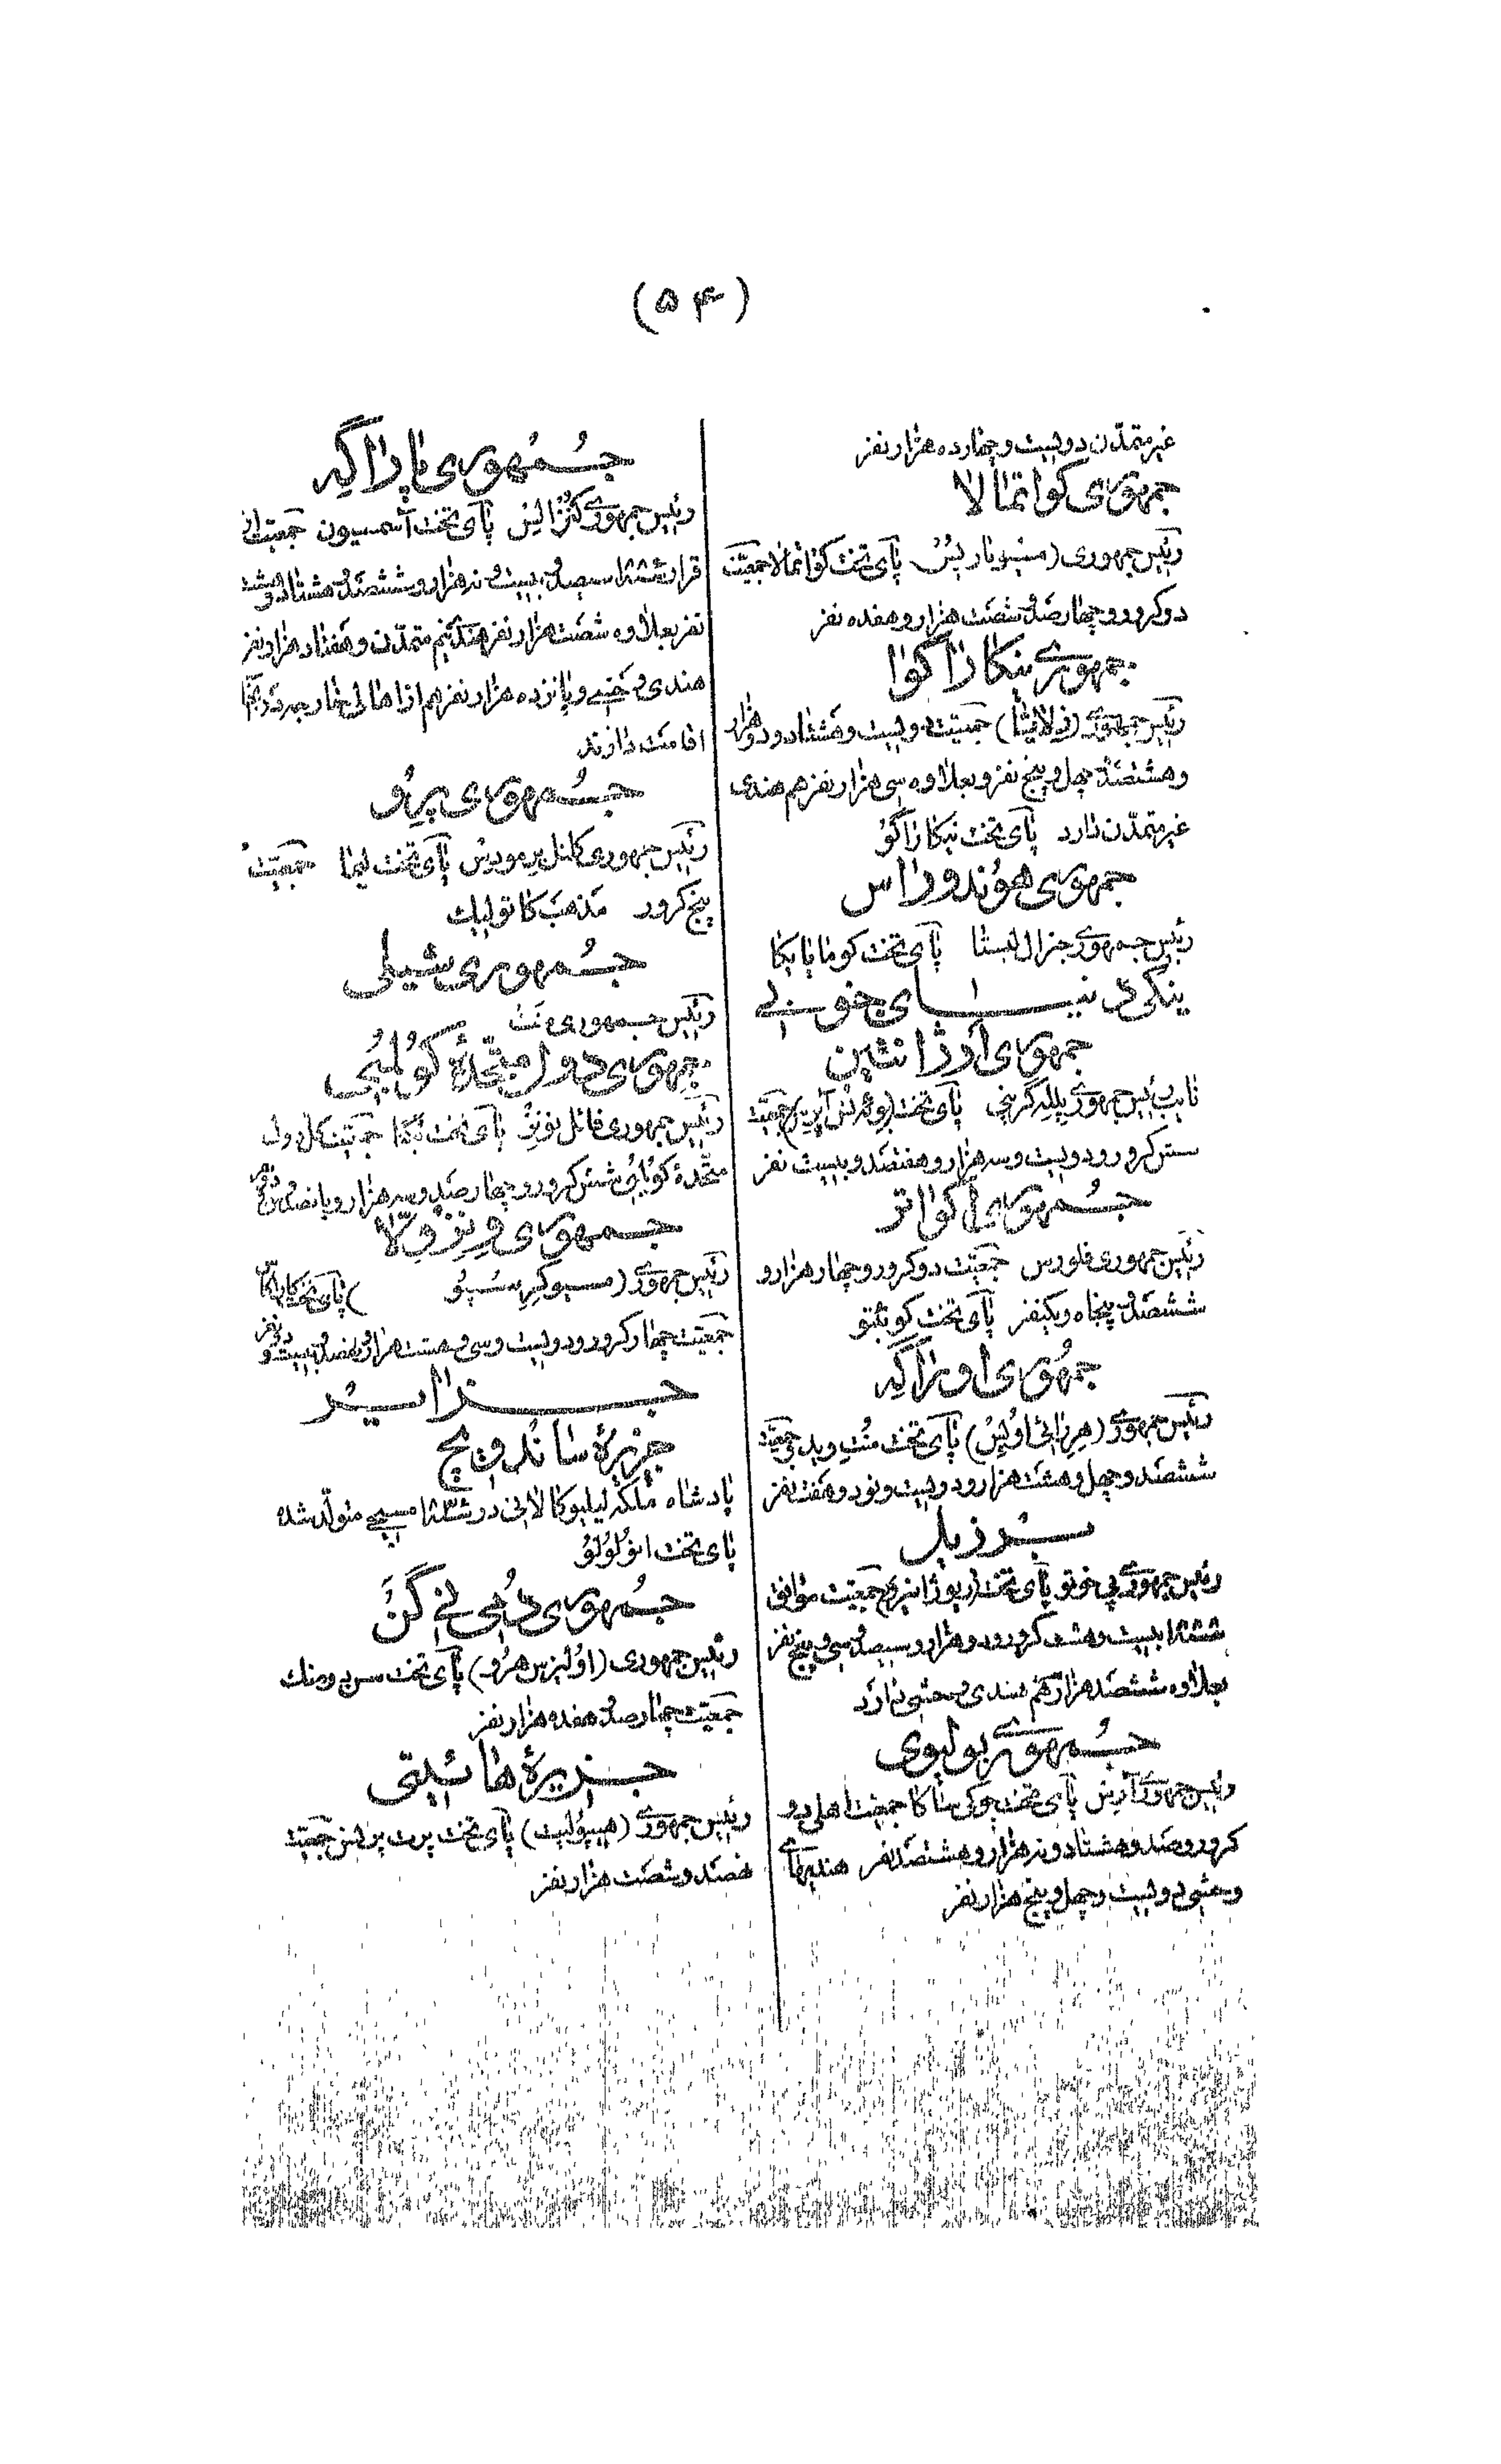 (۵۴)
غیرمتمدّن دویست و چهارده هزار نفر
جمهوری کواتمالا
رئیس جمهوری (مسیو باریس پای تخت کواتمالا جمعیّت
دو کرور و چهارصد و شصت هزار و هفده نفر
جمهوری نیکاراکوا
رئیس جمهوری ( ) جمعیّت دویست و هشتاد و دو هزار
و هشتصد و چهل و پنج نفر و بعلاوه سی هزار نفر هم هندی
غیرمتمدّن دارد پای تخت نیکاراکو
جمهوری هوندوراس
رئیس جمهوری جنرال لیستا پای تخت کومایاپکا
ینکی دنیای جنوبی
جمهوری آرژانتین
نایب رئیس جمهوری پللکرینی پای تخت (بوئنس آیریس) جمعیّت
شش کرور و دویست و سه هزار و هفتصد و بیست نفر
جمهوری اکواتر
رئیس جمهوری فلورس جمعیّت دو کرور و چهار هزار و
ششصد و پنجاه و یکنفر پای تخت کوئیتو
جمهوری اوراکه
رئیس جمهوری (هررائی اوبس) پای تخت منت ویدئو جمعیّت
ششصد و چهل و هشت هزار و دویست و نود و هفت نفر
برزیل
رئیس جمهوری پی خوتو پای تخت (ریوژانیرو) جمعیّت موافق
بیست و هشت کرور و دو هزار و سیصد و سی و پنج نفر
بعلاوه ششصد هزار هم هندی وحشی دارد
جمهوری بولیوی
رئیس جمهوری آرس پای تخت چوکی ساکا جمعیّت اهلی دو
کرور و صد و هشتاد و نه هزار و هشتصد نفر هندیهای
وحشی دویست و چهل و پنج هزار نفر
جمهوری پاراکه
رئیس جمهوری کنزالیس پای تخت آسمسیون جمعیّت از
قرار سیصد و بیست و نه هزار و ششصد و هشتاد و هشت
نفر بعلاوه شصت هزار نفر هندی نیم متمدّن و هفتاد هزار نفر
هندی وحشی و پانزده هزار نفر هم از اهالی خارجه در آنجا
اقامت دارند
جمهوری پرو
رئیس جمهوری کلنل برمودس پای تخت لیما جمعیّت
پنج کرور مذهب کاتولیک
جمهوری شیلی
رئیس جمهوری منت
جمهوری دول متّحدهٔ کولمبی
رئیس جمهوری فائل نونز پای تخت بگتا جمعیّت کل دول
متّحدهٔ کولمبی شش کرور و چهارصد و سه هزار و پانصد و
جمهوری ونزولّا
رئیس جمهوری (مسیو کرسپو ) پای تخت کاراکاس
جمعیّت چهار کرور و دویست و سی و هشت هزار و نهصد و بیست و دو نفر
جزایر
جزیرهٔ ساندویچ
پادشاه ملکه لیلیوکالانی در ۱۸۳۸ مسیحی متولّد شده
پای تخت انولولو
جمهوری دمی نی کن
رئیس جمهوری (اولیزس هرو) پای تخت سن دومنک
جمعیّت چهارصد و هفده هزار نفر
جزیرهٔ هائیتی
رئیس جمهوری (هیپولیت) پای تخت پرت پرنس جمعیّت
نهصد و شصت هزار نفر